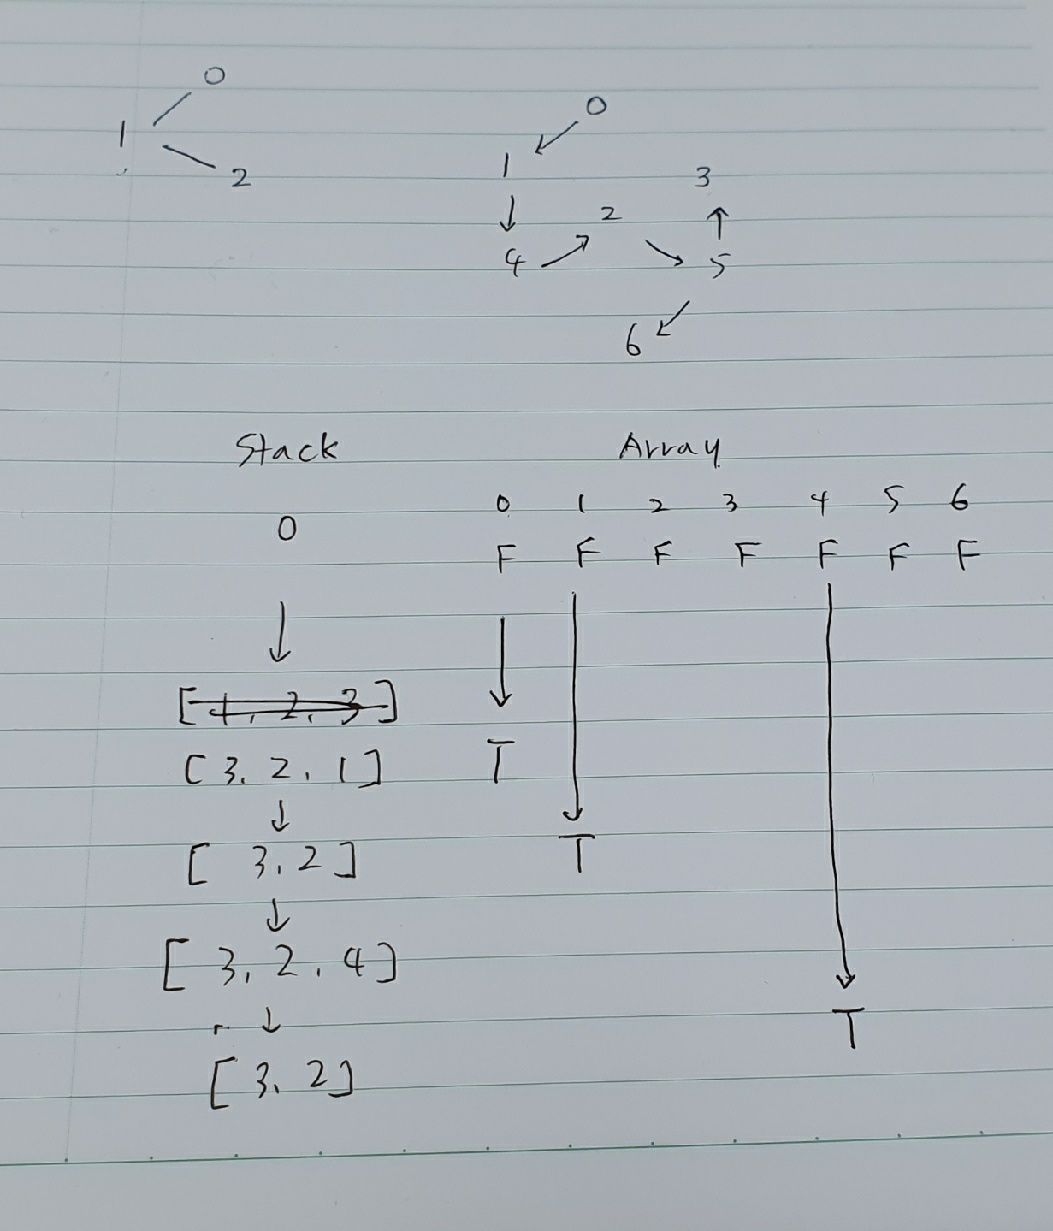 0
1
2
0
1
3
2
4
5
6
Stack Array
0 1 2 3 4 5 6
0
F F F F F F F
[1, 2, 3]
[3, 2, 1] T
[3, 2] T
[3, 2, 4]
T
[3, 2]